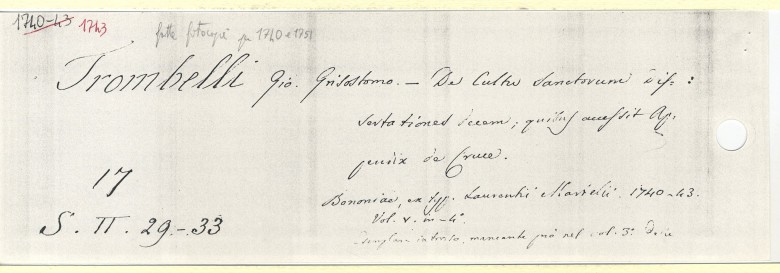 1740-43 1743
fatte fotocopie per 1740 e 1751
Trombelli Gio. Grisostomo. — De Cultu Sanctorum dis:
sertationes decem; quibus accessit Ap,
pendix de Cruce.
17
Bononiae, ex typ. Laurentii Martelii, 1740-43.
Vol. V. in-4°.
S. II. 29.-.33
intonso, mancante però nel vol. 3°